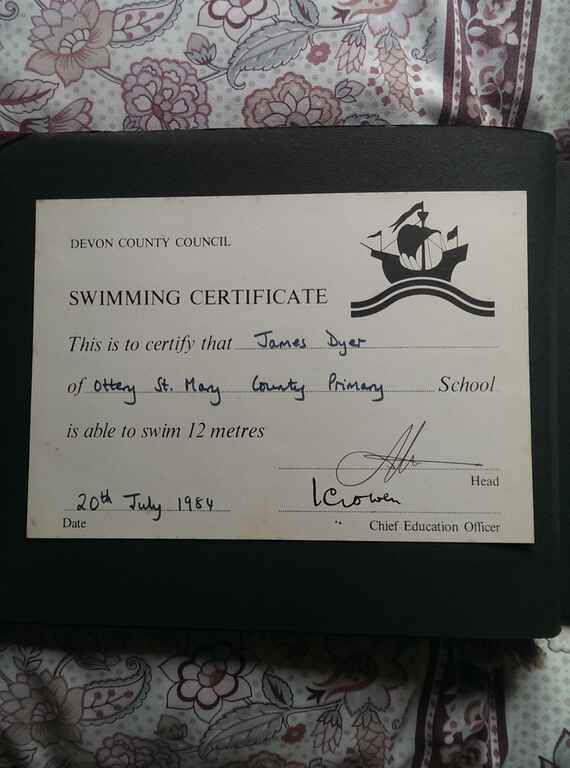 DEVON COUNTY COUNCIL
SWIMMING CERTIFICATE
This is to certify that James Dyer
of Ottery St. Mary County Primary School
is able to swim 12 metres
Head
20th July 1984
Date
Chief Education Officer